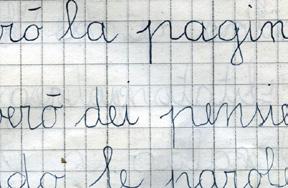 rò la pagin
erò dei pensie
do le parole